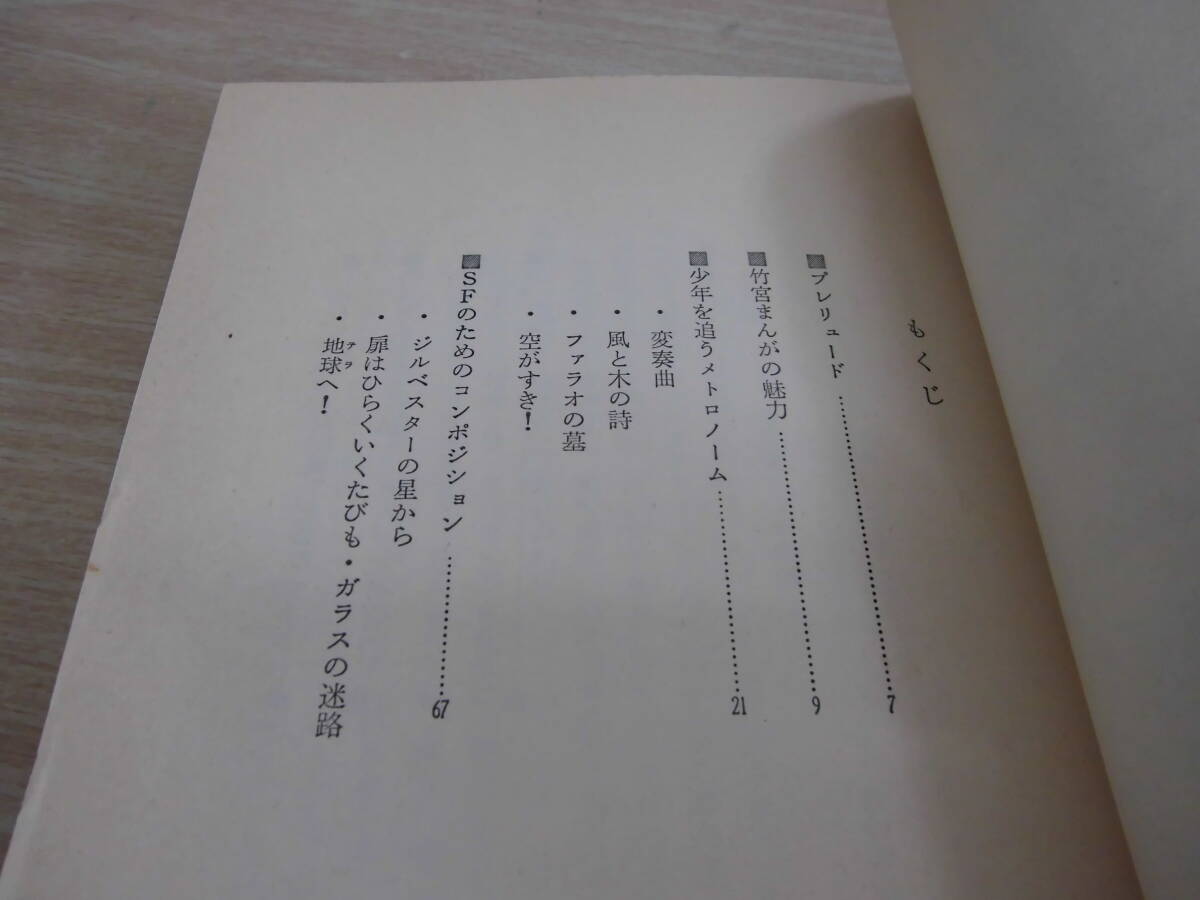 もくじ
■プレリュード……………………7
■竹宮まんがの魅力……………………9
■少年を追うメトロノーム……………………21
・変奏曲
・風と木の詩
・ファラオの墓
・空がすき！
■SFのためのコンポジション……………………67
・ジルベスターの星から
・扉はひらくいくたびも・ガラスの迷路
・地球へ！
テラ